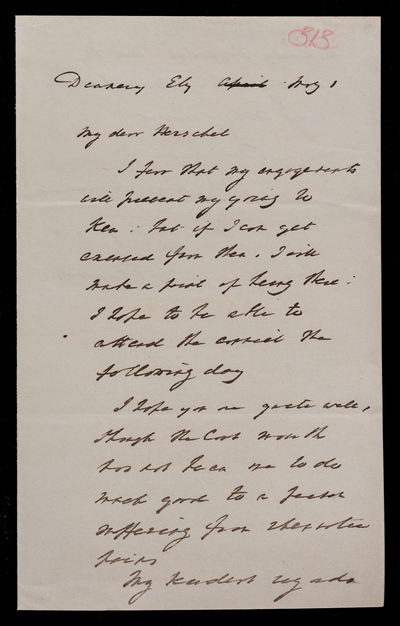 313
Deanery Ely April May 1
My dear Herschel
I fear that my engagements
will prevent my going to
Kew: but if I can get
excused from them, I will
make a point of being there:
I hope to be able to
attend the council the
following day
I hope you are quite well,
though the last month
has not been one to do
much good to a person
suffering from rheumatic
pains
My kindest regards